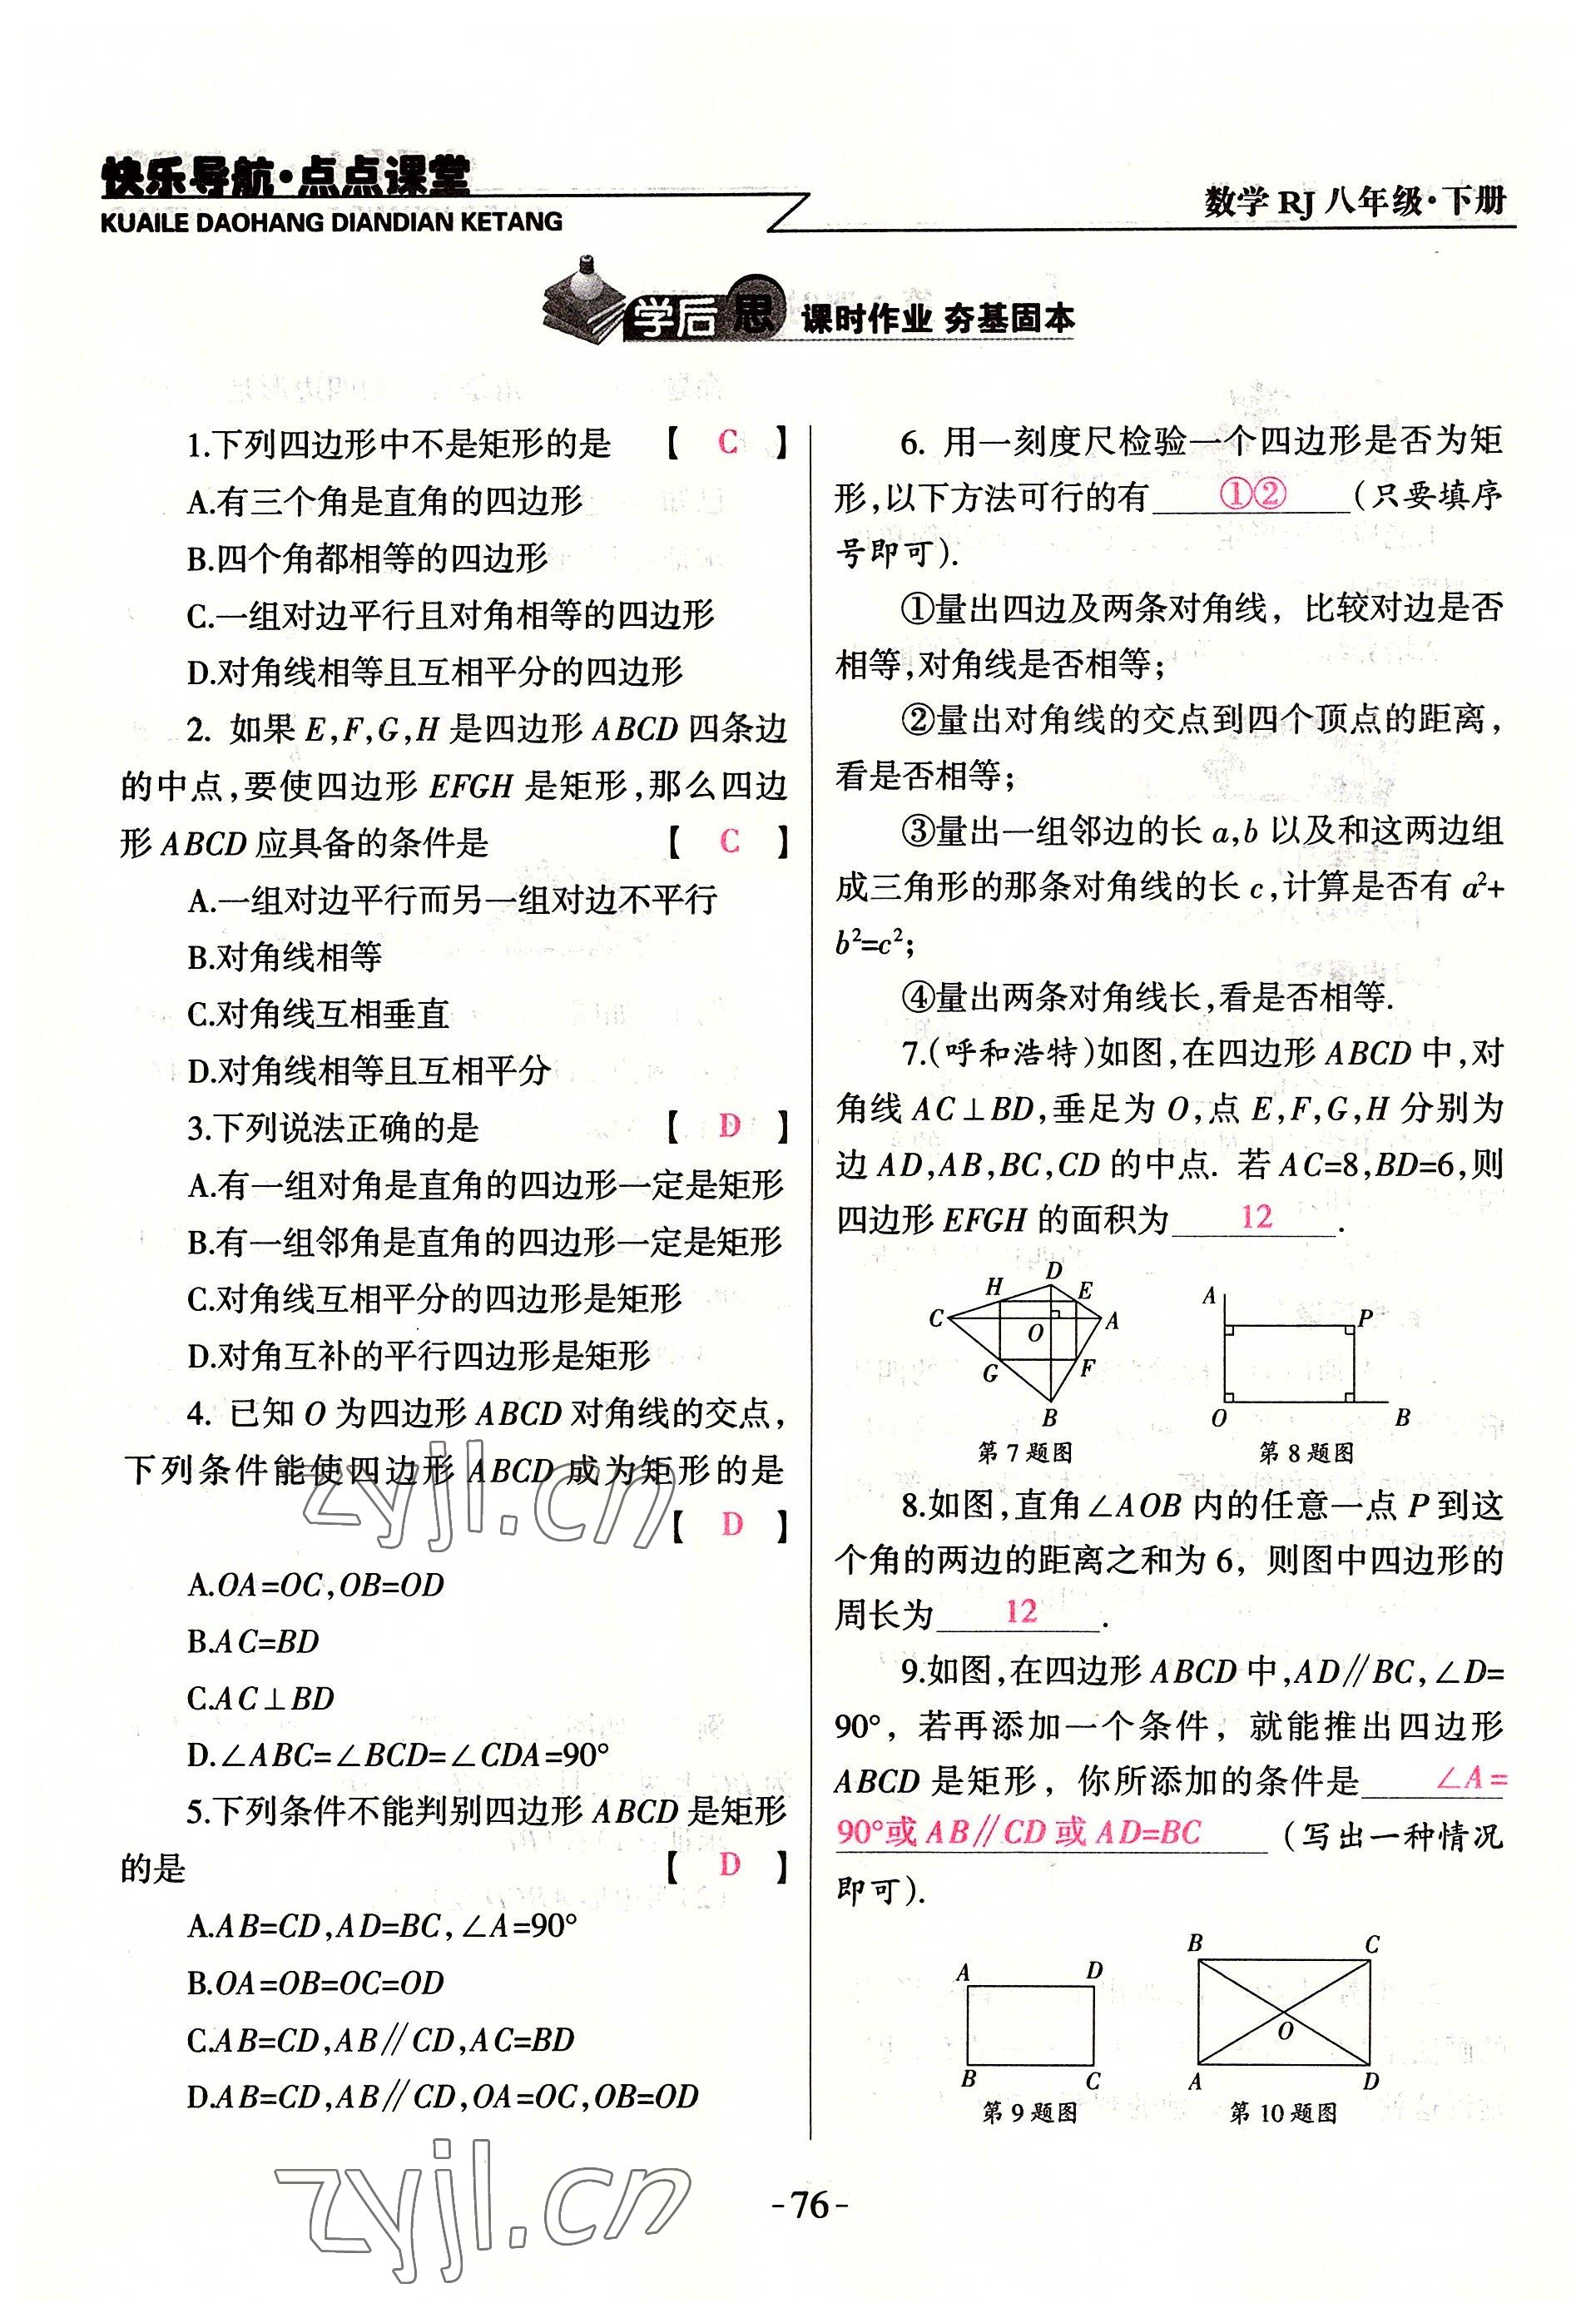 快乐导航·点点课堂
KUAILE DAOHANG DIANDIAN KETANG
数学 RJ 八年级·下册
学后思 课时作业 夯基固本
1.下列四边形中不是矩形的是 【 C 】
A.有三个角是直角的四边形
B.四个角都相等的四边形
C.一组对边平行且对角相等的四边形
D.对角线相等且互相平分的四边形
2. 如果 E,F,G,H 是四边形 ABCD 四条边
的中点,要使四边形 EFGH 是矩形,那么四边
形 ABCD 应具备的条件是 【 C 】
A.一组对边平行而另一组对边不平行
B.对角线相等
C.对角线互相垂直
D.对角线相等且互相平分
3.下列说法正确的是 【 D 】
A.有一组对角是直角的四边形一定是矩形
B.有一组邻角是直角的四边形一定是矩形
C.对角线互相平分的四边形是矩形
D.对角互补的平行四边形是矩形
4. 已知 O 为四边形 ABCD 对角线的交点,
下列条件能使四边形 ABCD 成为矩形的是
【 D 】
A.OA=OC,OB=OD
B.AC=BD
C.AC⊥BD
D.∠ABC=∠BCD=∠CDA=90°
5.下列条件不能判别四边形 ABCD 是矩形
的是 【 D 】
A.AB=CD,AD=BC,∠A=90°
B.OA=OB=OC=OD
C.AB=CD,AB∥CD,AC=BD
D.AB=CD,AB∥CD,OA=OC,OB=OD
6. 用一刻度尺检验一个四边形是否为矩
形,以下方法可行的有 ①② (只要填序
号即可).
①量出四边及两条对角线，比较对边是否
相等,对角线是否相等；
②量出对角线的交点到四个顶点的距离，
看是否相等；
③量出一组邻边的长 a,b 以及和这两边组
成三角形的那条对角线的长 c,计算是否有 a²+
b²=c²；
④量出两条对角线长,看是否相等.
7.(呼和浩特)如图,在四边形 ABCD 中,对
角线 AC⊥BD,垂足为 O,点 E,F,G,H 分别为
边 AD,AB,BC,CD 的中点. 若 AC=8,BD=6,则
四边形 EFGH 的面积为 12 .
D
H E
C A
O
G F
B
第7题图
A
P
O B
第8题图
8.如图,直角∠AOB 内的任意一点 P 到这
个角的两边的距离之和为 6，则图中四边形的
周长为 12 .
9.如图,在四边形 ABCD 中,AD∥BC,∠D=
90°，若再添加一个条件，就能推出四边形
ABCD 是矩形，你所添加的条件是 ∠A=
90°或 AB∥CD 或 AD=BC (写出一种情况
即可).
A D
B C
第9题图
B C
O
A D
第10题图
zyjl.cn
zyjl.cn
-76-